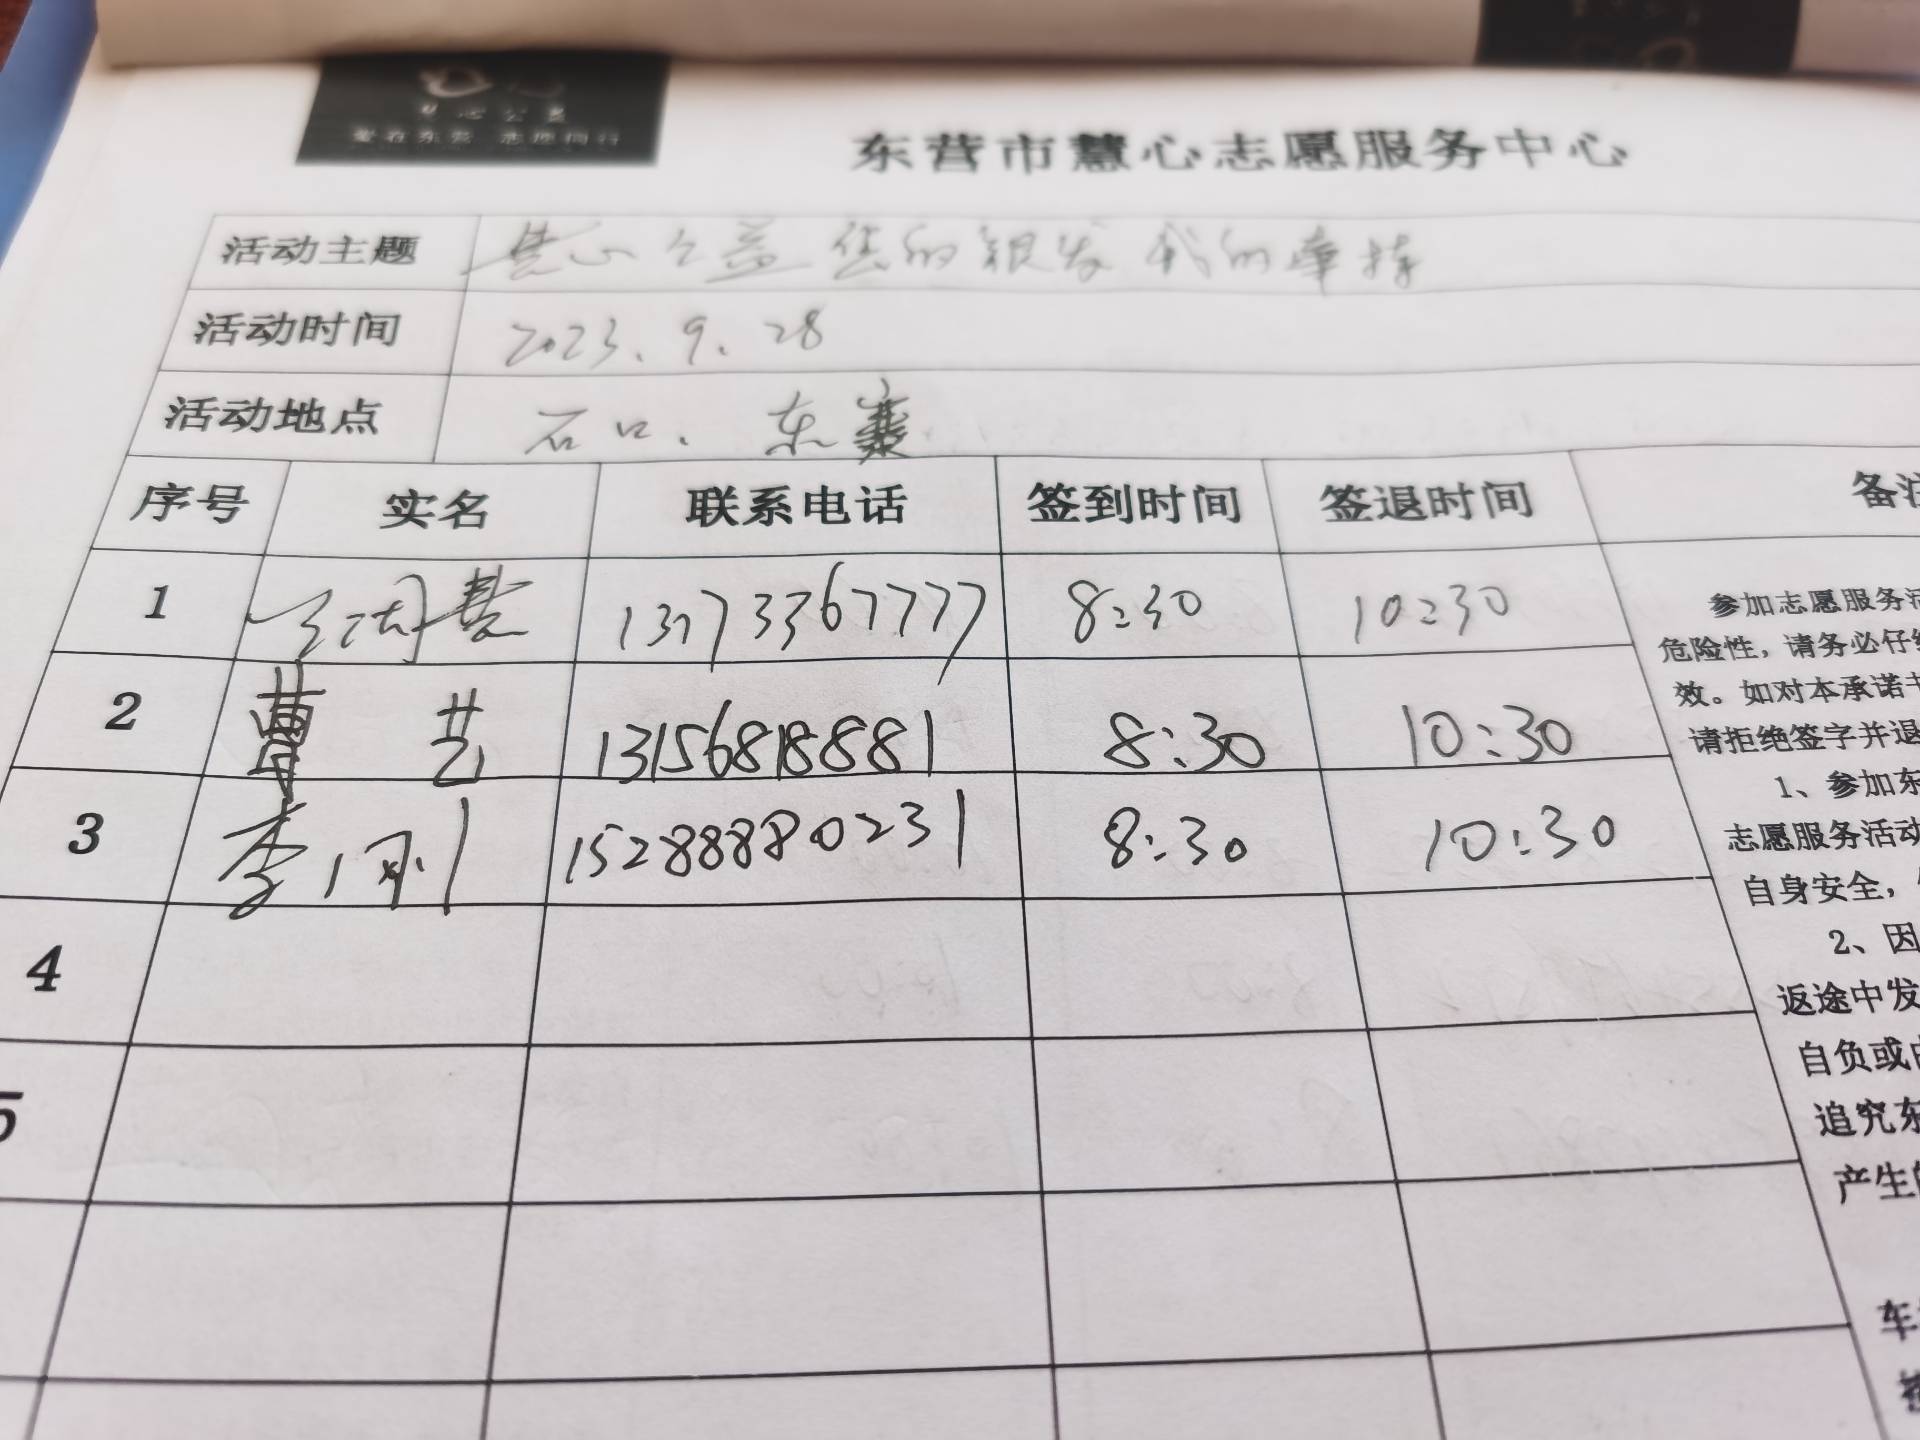 爱在东营 志愿同行
东营市慧心志愿服务中心
活动主题 慧心公益 您的银发 我的牵挂
活动时间 2023.9.28
活动地点 石口、东寨
序号 实名 联系电话 签到时间 签退时间 备注
1 13773367777 8:30 10:30
2 曹艺 13156818881 8:30 10:30
3 李刚 15288880231 8:30 10:30
4
5
参加志愿服务活
危险性，请务必仔细
效。如对本承诺书
请拒绝签字并退
1、参加东
志愿服务活动
自身安全，
2、因
返途中发
自负或由
追究东
产生的
车